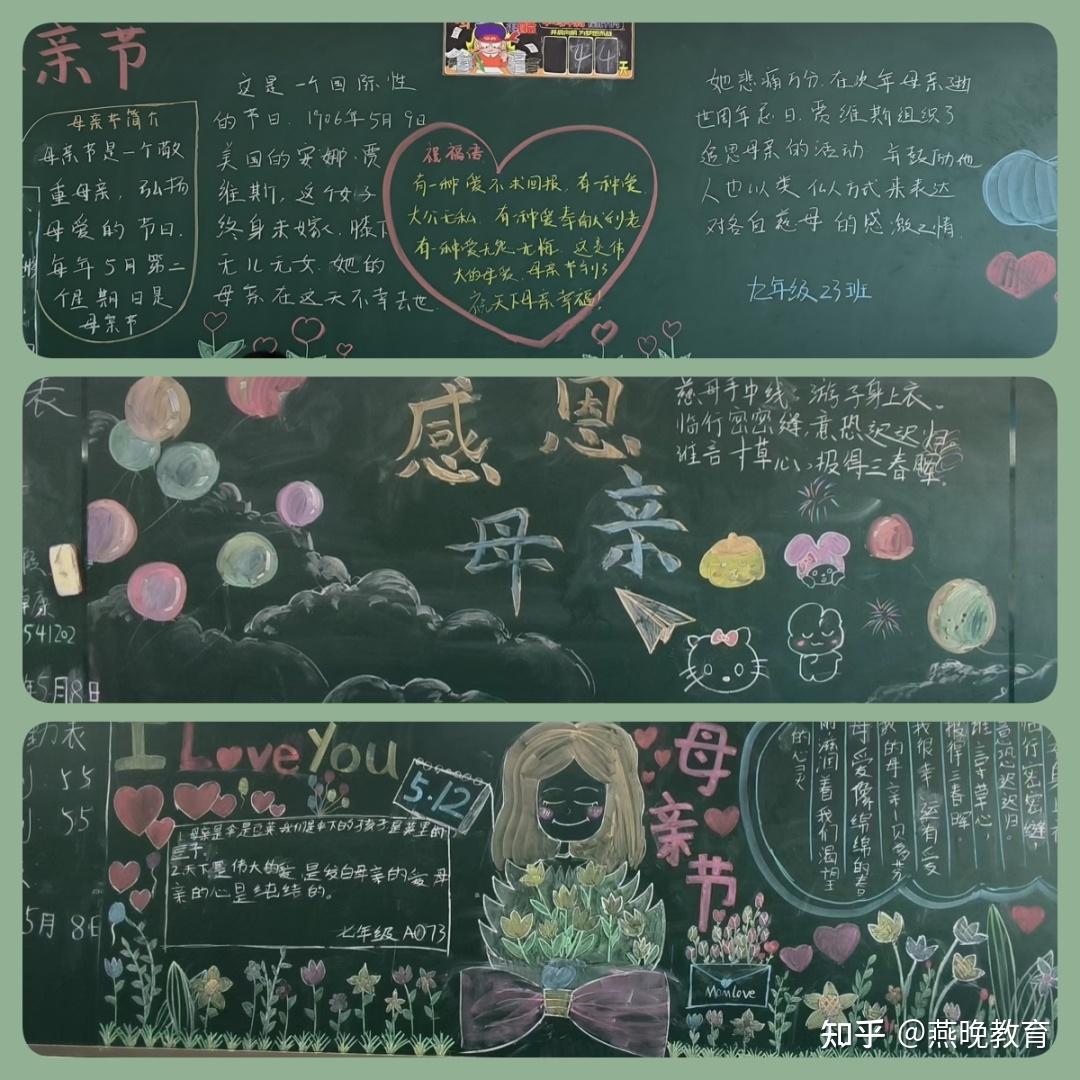 亲节
44天
母亲节简介
母亲节是一个敬
重母亲，弘扬
母爱的节日.
每年5月第二
个星期日是
母亲节
这是一个国际性
的节日.1906年5月9日
美国的安娜·贾
维斯，这个女子
终身未嫁.膝下
无儿无女.她的
母亲在这天不幸去世.
祝福语
有一种爱不求回报.有一种爱
大公无私.有一种爱奉献到老
有一种爱无怨无悔.这是伟
大的母爱.母亲节到了
祝天下母亲幸福！
她悲痛万分.在次年母亲逝
世周年忌日.贾维斯组织了
追思母亲的活动.并鼓励他
人也以类似方式来表达
对各自慈母的感激之情.
七年级23班
表
541202
5月8日
感恩
母亲
慈母手中线，游子身上衣。
临行密密缝，意恐迟迟归
谁言寸草心，报得三春晖。
勤表
55
55
5月8日
I Love You
5.12
2.天下最伟大的爱，是发自母亲的爱，母
亲的心是纯结的。
七年级 A073
母亲节
Mom Love
临行密密缝，
意恐迟迟归。
谁言寸草心
报得三春晖
我的母亲—贝多芬
母爱像绵绵的春
雨滋润着我们渴望
的心灵
知乎 @燕晚教育